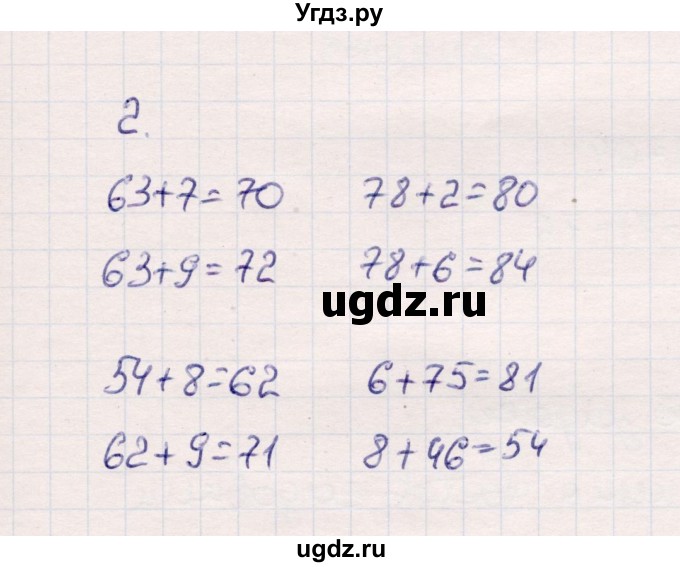 Угдз.ру
2.
63+7=70 78+2=80
63+9=72 78+6=84
ugdz.ru
54+8=62 6+75=81
62+9=71 8+46=54
ugdz.ru